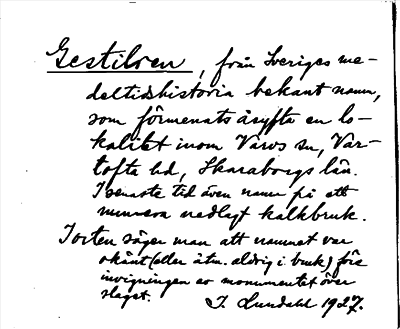 Gestilren, från Sveriges me-
deltidshistoria bekant namn,
som förmenats åsyfta en lo-
kalitet inom Varvs sn, Var-
tofta hd, Skaraborgs län.
I senaste tid även namn på ett
numera nedlagt kalkbruk.
I orten säger man att namnet var
okänt (eller åtm. aldrig i bruk) före
invigningen av monumentet över
slaget. I. Lundahl 1927.